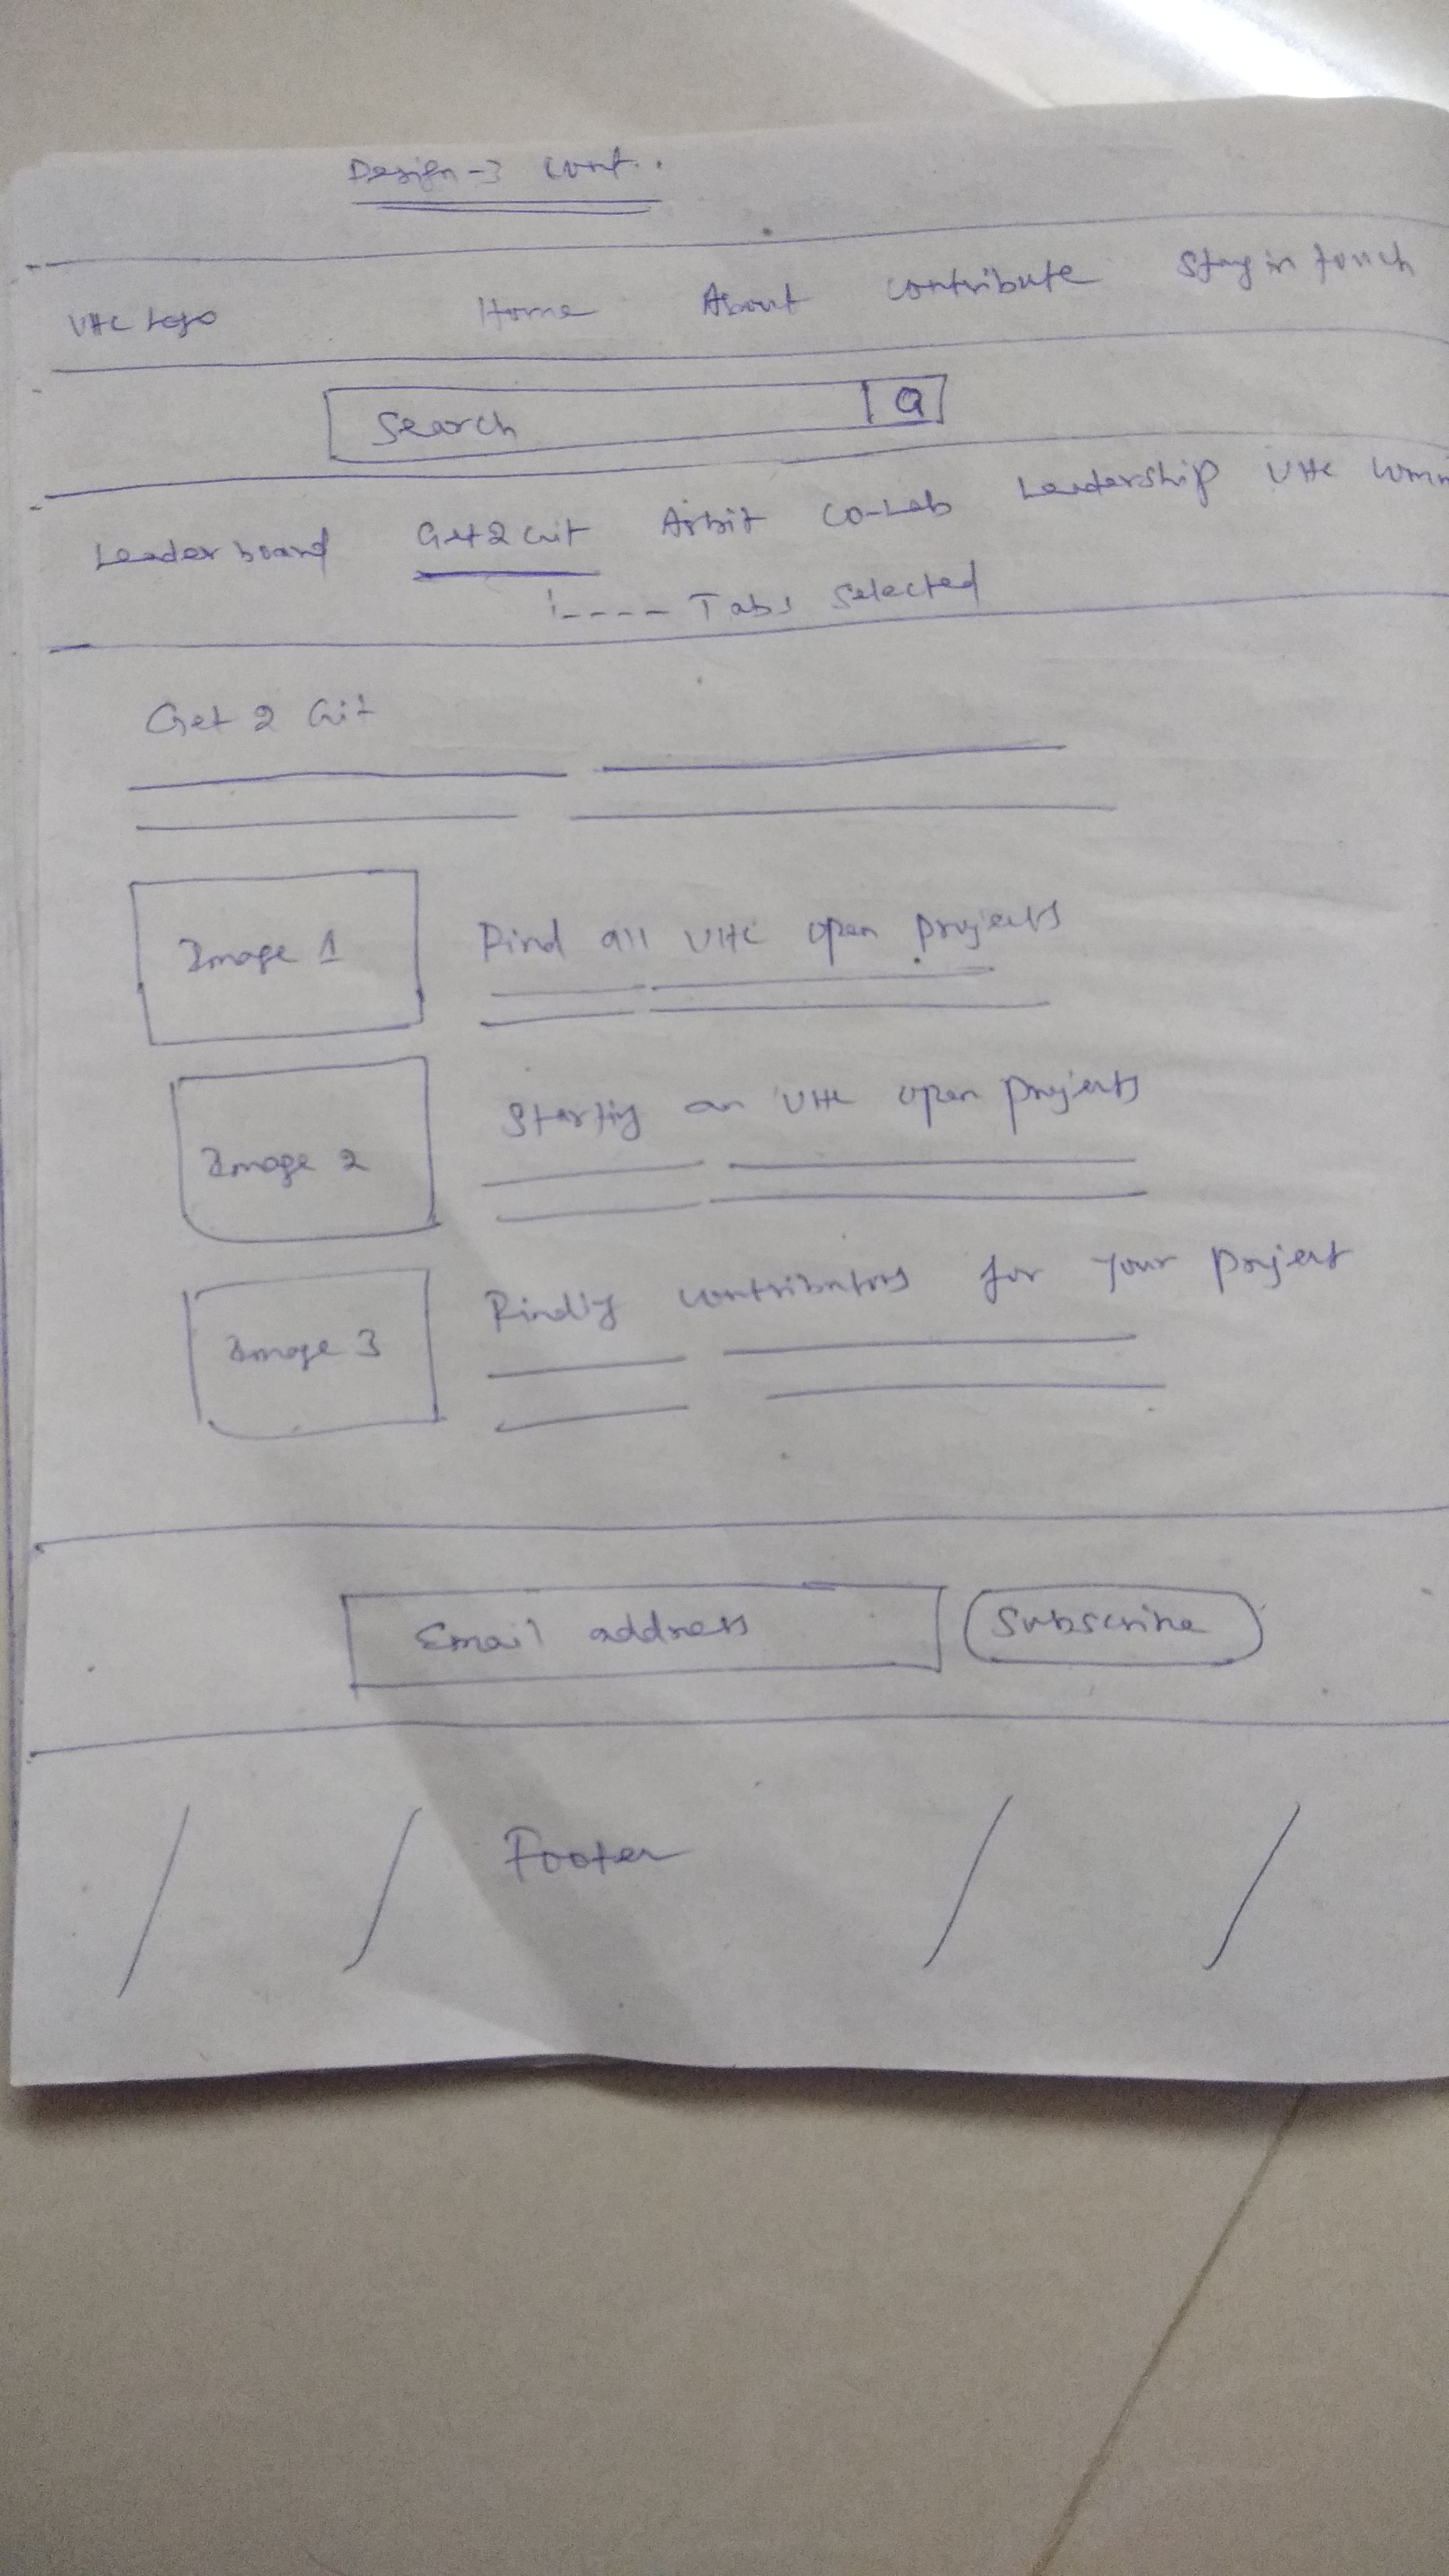 Design-3 cont..
VHC logo Home About contribute Stay in touch
Search
Leader board Get2Git Arbit Co-Lab Leadership VHC
Tabs Selected
Get 2 Git
Image 1 Find all VHC open projects
Image 2 Starting an VHC open projects
Image 3 Finding contributors for your project
Email address Subscribe
Footer